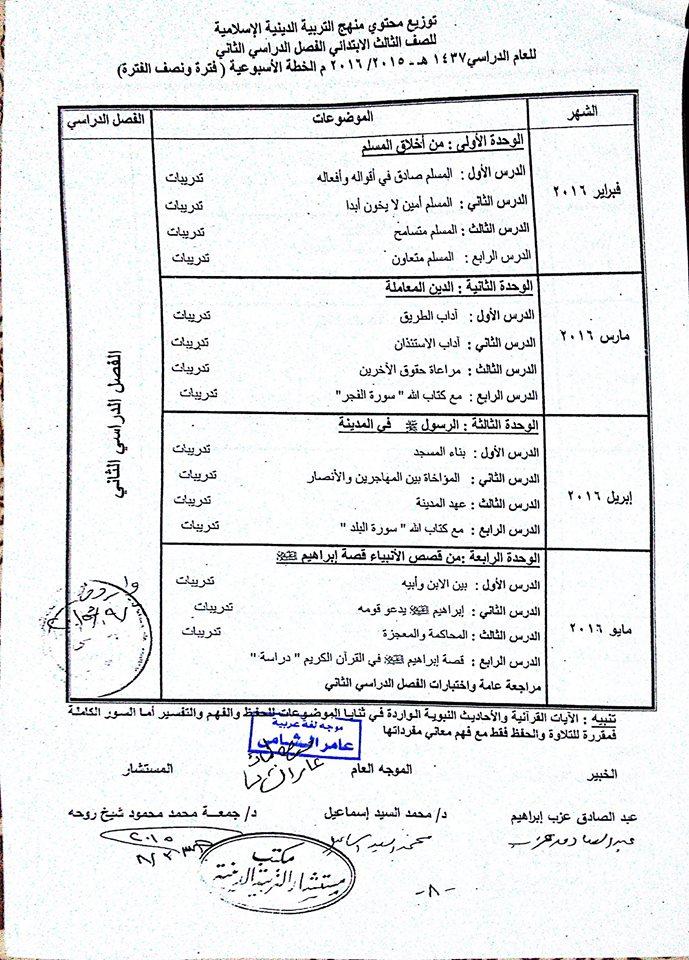 توزيع محتوي منهج التربية الدينية الإسلامية
للصف الثالث الابتدائي الفصل الدراسي الثاني
للعام الدراسي١٤٣٧ هـ - ٢٠١٥/ ٢٠١٦ م الخطة الأسبوعية ( فترة ونصف الفترة)
الشهر الموضوعات الفصل الدراسي
الوحدة الأولى : من أخلاق المسلم
فبراير ٢٠١٦
الدرس الأول : المسلم صادق في أقواله وأفعاله تدريبات
الدرس الثاني : المسلم أمين لا يخون أبدا تدريبات
الدرس الثالث : المسلم متسامح تدريبات
الدرس الرابع : المسلم متعاون تدريبات
الوحدة الثانية : الدين المعاملة
مارس ٢٠١٦
الدرس الأول : آداب الطريق تدريبات
الدرس الثاني : آداب الاستئذان تدريبات
الدرس الثالث : مراعاة حقوق الأخرين تدريبات
الدرس الرابع : مع كتاب الله " سورة الفجر" تدريبات
الفصل الدراسي الثاني
الوحدة الثالثة : الرسول ﷺ في المدينة
إبريل ٢٠١٦
الدرس الأول : بناء المسجد تدريبات
الدرس الثاني : المؤاخاة بين المهاجرين والأنصار تدريبات
الدرس الثالث : عهد المدينة تدريبات
الدرس الرابع : مع كتاب الله " سورة البلد " تدريبات
الوحدة الرابعة :من قصص الأنبياء قصة إبراهيم
مايو ٢٠١٦
الدرس الأول : بين الابن وأبيه تدريبات
الدرس الثاني : إبراهيم يدعو قومه تدريبات
الدرس الثالث : المحاكمة والمعجزة تدريبات
الدرس الرابع : قصة إبراهيم في القرآن الكريم " دراسة "
مراجعة عامة واختبارات الفصل الدراسي الثاني
تنبيه : الآيات القرآنية والأحاديث النبوية الواردة في ثنايا الموضوعات للحفظ والفهم والتفسير أما السور الكاملة
فمقررة للتلاوة والحفظ فقط مع فهم معاني مفرداتها
موجه لغة عربية
عامر الشامى
الخبير الموجه العام المستشار
عبد الصادق عزب إبراهيم د/ محمد السيد إسماعيل د/ جمعة محمد محمود شيخ روحه
مكتب
مستشار التربية الدينية
-٨-